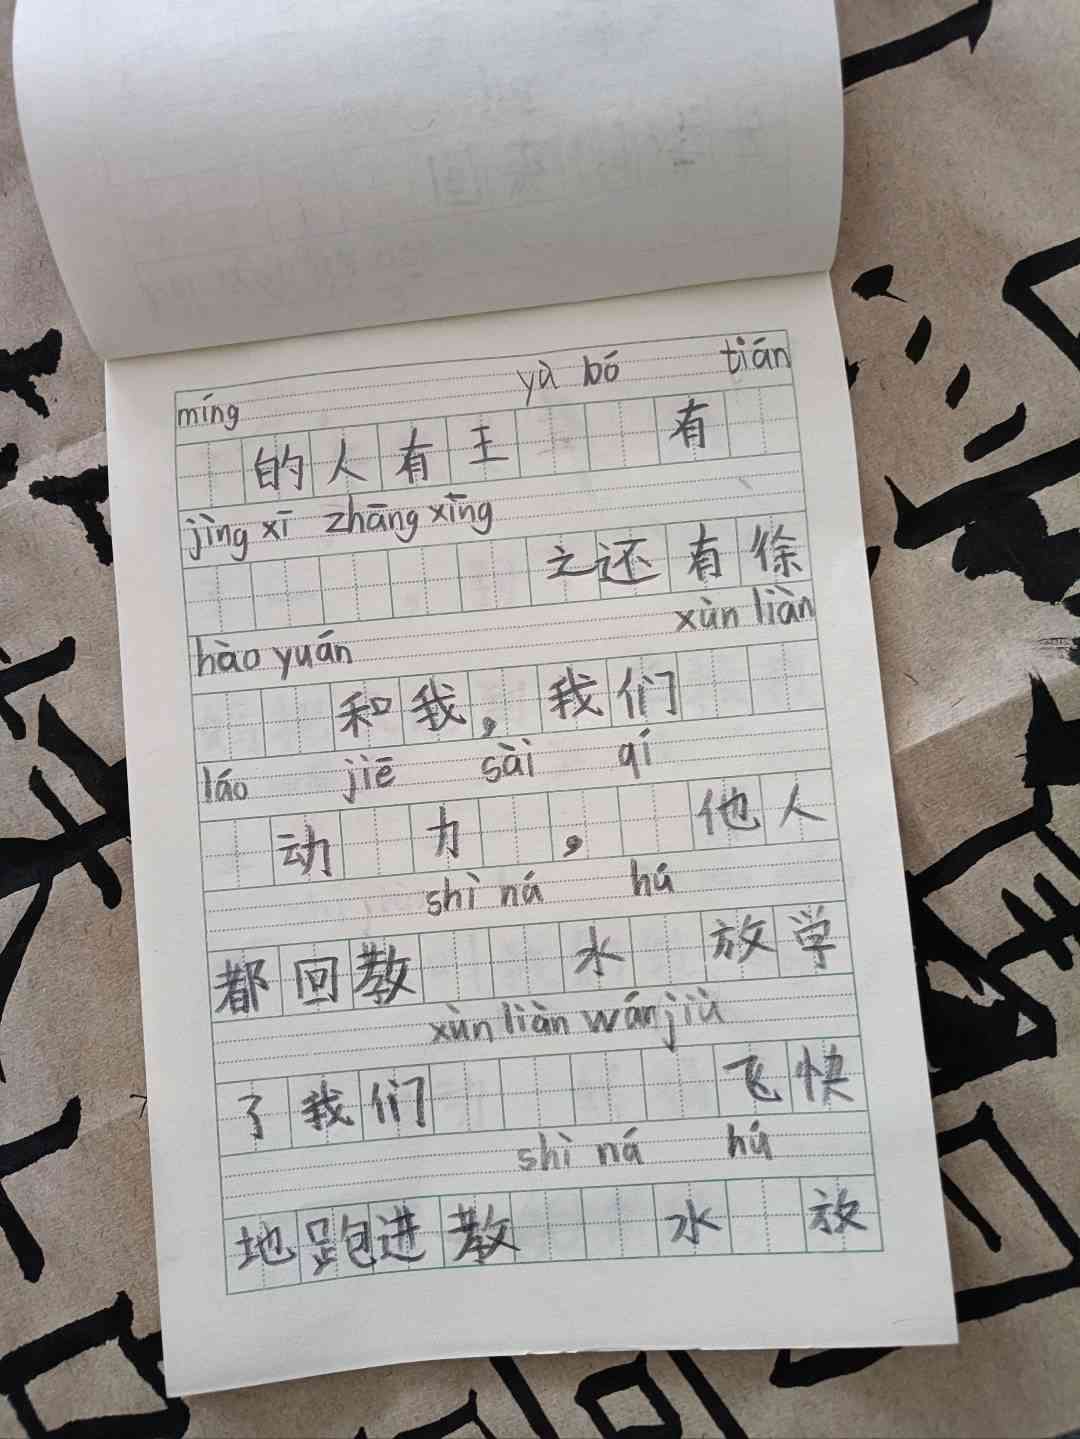 míng yà bó tián
的人有王 有
jìng xī zhāng xīng
之还有徐
hào yuán xùn liàn
和我，我们
láo jiē sài qí
动 力 ， 他人
shì ná hú
都回教 水 放学
xùn liàn wán jiù
了我们 飞快
shì ná hú
地跑进教 水 放